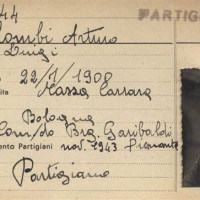 44
PARTIG
Colombi Arturo
Luigi
22/1/1900
ita Massa Carrara
Bologna
Com/do Brg. Garibaldi
mento Partigiani nov. 1943 Piemonte
Partigiano